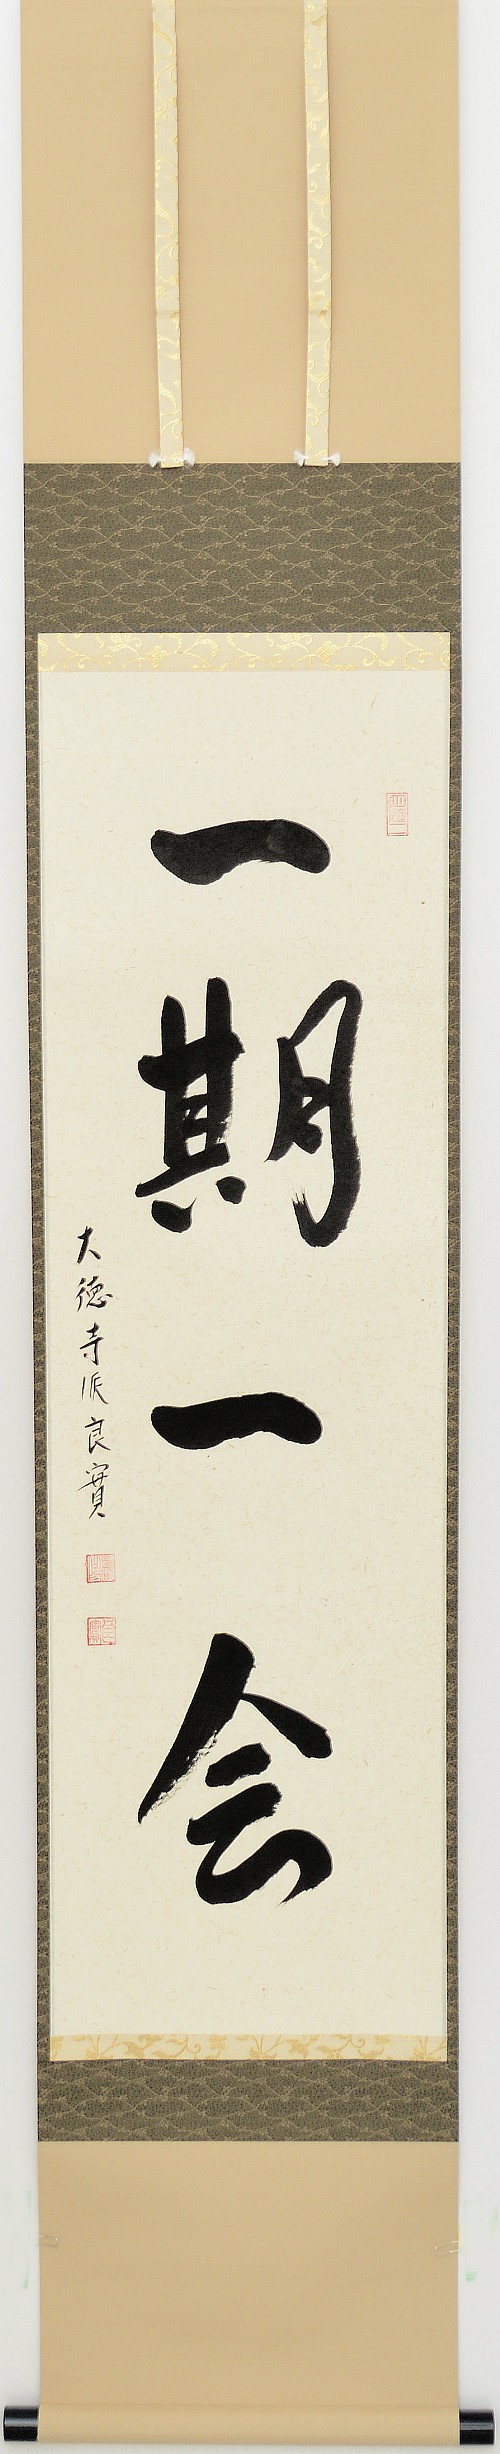 一期一会
大徳寺派良實